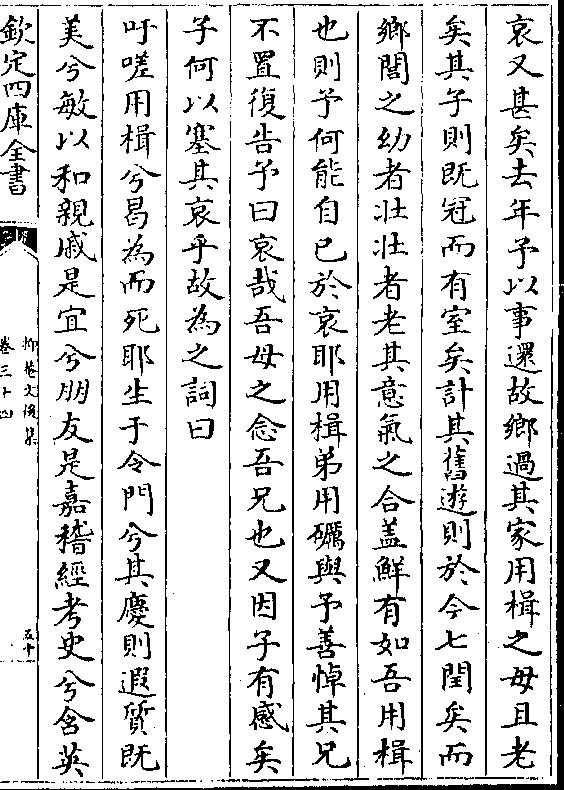 哀又甚矣去年予以事還故鄉過其家用楫之母且老
矣其子則既冠而有室矣計其舊遊則於今七閏矣而
鄉閭之幼者壯壯者老其意氣之合蓋鮮有如吾用楫
也則予何能自已於哀耶用楫弟用礪與予善悼其兄
不置復告予曰哀哉吾母之念吾兄也又因子有感矣
子何以塞其哀乎故為之詞曰
吁嗟用楫兮曷為而死耶生于令門兮其慶則遐質既
美兮敏以和親戚是宜兮朋友是嘉稽經考史兮含英
欽定四庫全書
抑菴文後集
卷三十四
五十